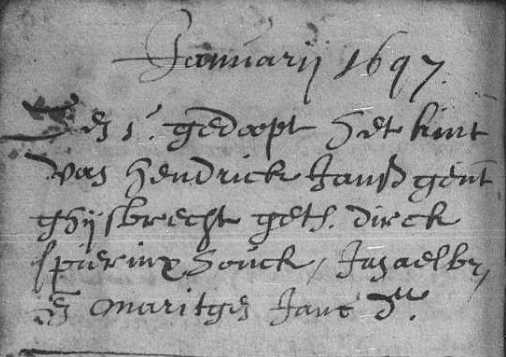 Januarij 1697.
Den 1. gedoopt het kint
van Hendrick Janß gent
ghijsbrecht get. dirck
spierinx Souck, Isaelby
En Maritgen Jans dr.